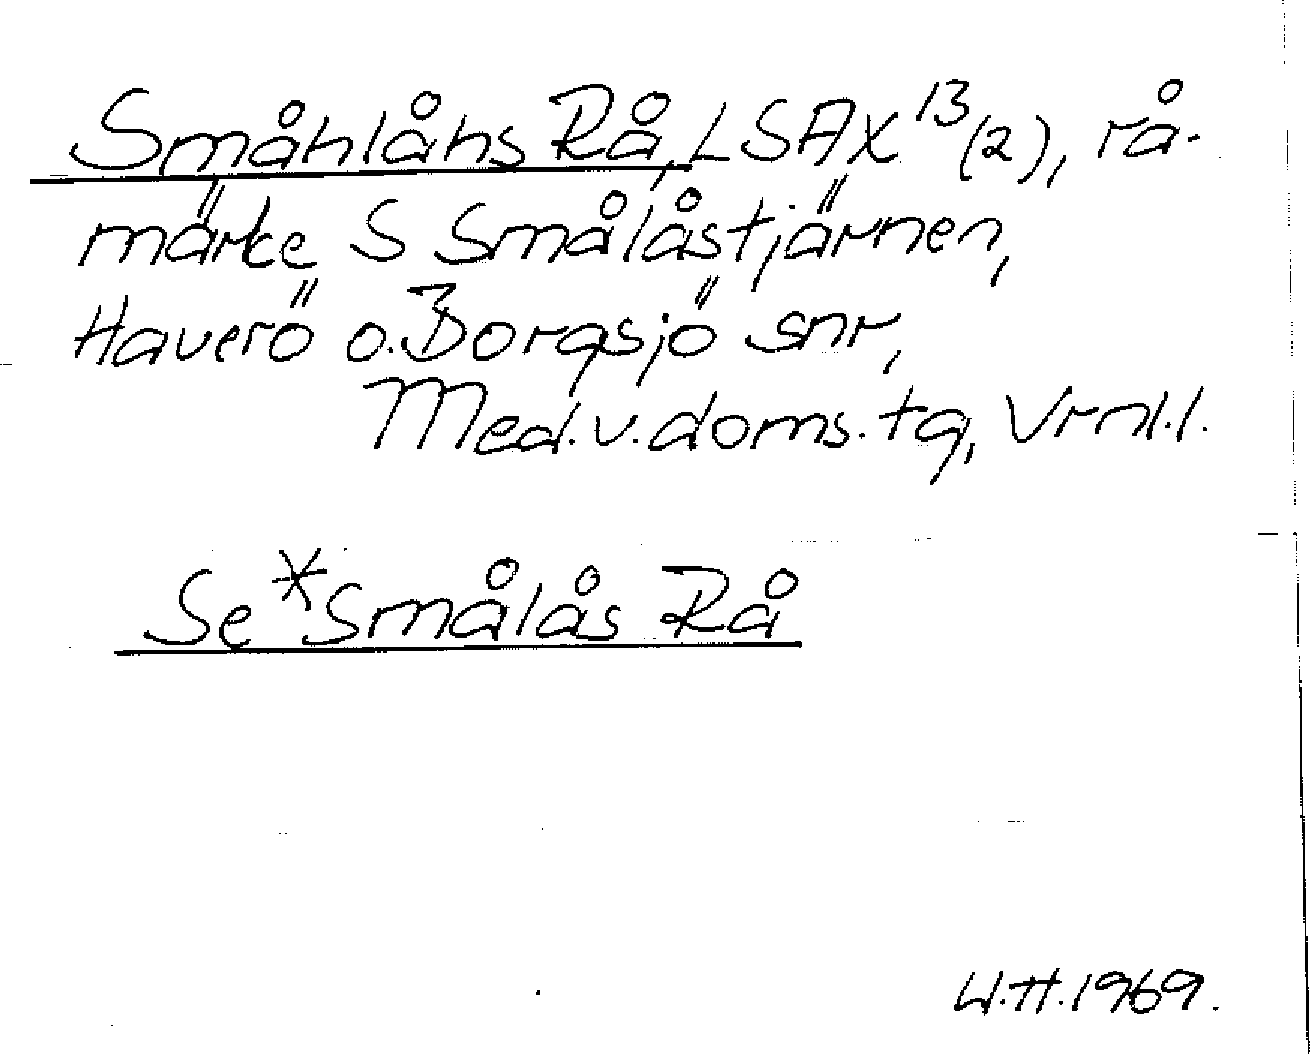 Småhlåhs Rå, LSA X¹³(2), rå-
märke S Smålåstjärnen,
Haverö o. Borgsjö snr,
Med. v. doms. tg, Vrnl. l.
Se *Smålås Rå
W.H. 1969.